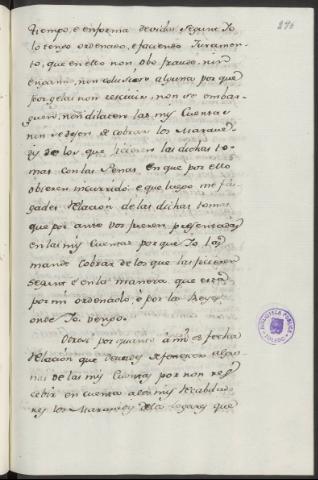 276
tiempo, e enforma devida segunt Io
lo tengo ordenado, e faciendo Juramen-
to, que en ello non obo fraude, nin
engaño, nin colusion alguna por que
por ge las non rescivir, non se embar-
guen, nin dilaten las mis Cuentas
nin se dejen de cobrar los Marave-
dis de los que ficieren las dichas to-
mas con las Penas en que por ello
obieren incurrido: e que luego me fa-
gades relacion de las dichas tomas
que por ante vos fueren presentadas
en las mis Cuentas por que Io las
mande cobrar de los que las ficieren
segunt e en la manera que está
por mi ordenado, e por los Reyes
onde Io vengo.
Otrosi por quanto á mi es fecha
relacion que Vosotros detenedes algu-
nas de las mis Cuentas por non res-
cebir en cuenta a los mis Recabdado-
res los Maravedis de los logares que
BIBLIOTECA PUBLICA
TOLEDO